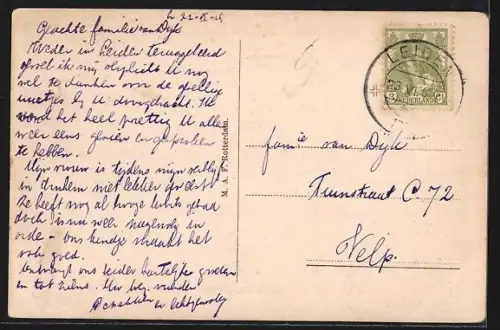 L 22-VI-25
Geachte familie van Dyk
Weder in Leiden teruggekeerd
gevoel ik mij verplicht U nog
wel te danken voor de gezellige
uurtjes bij U doorgebracht. Ik
vond het heel prettig U allen
weer eens gezien en gesproken
te hebben.
Mijn vrouw is tijdens mijn verblijf
in Arnhem niet lekker geweest
Ze heeft nog al hooge koorts gehad
doch is nu weer nagenoeg in
orde - ons kindje maakt het
ook goed.
Ontvangt ons beider hartelijke groeten
en tot ziens. Uw
en
M. A. F. Rotterdam.
LEIDEN
NEDERLAND
famie van Dyk
Tuinstraat C 72
Velp